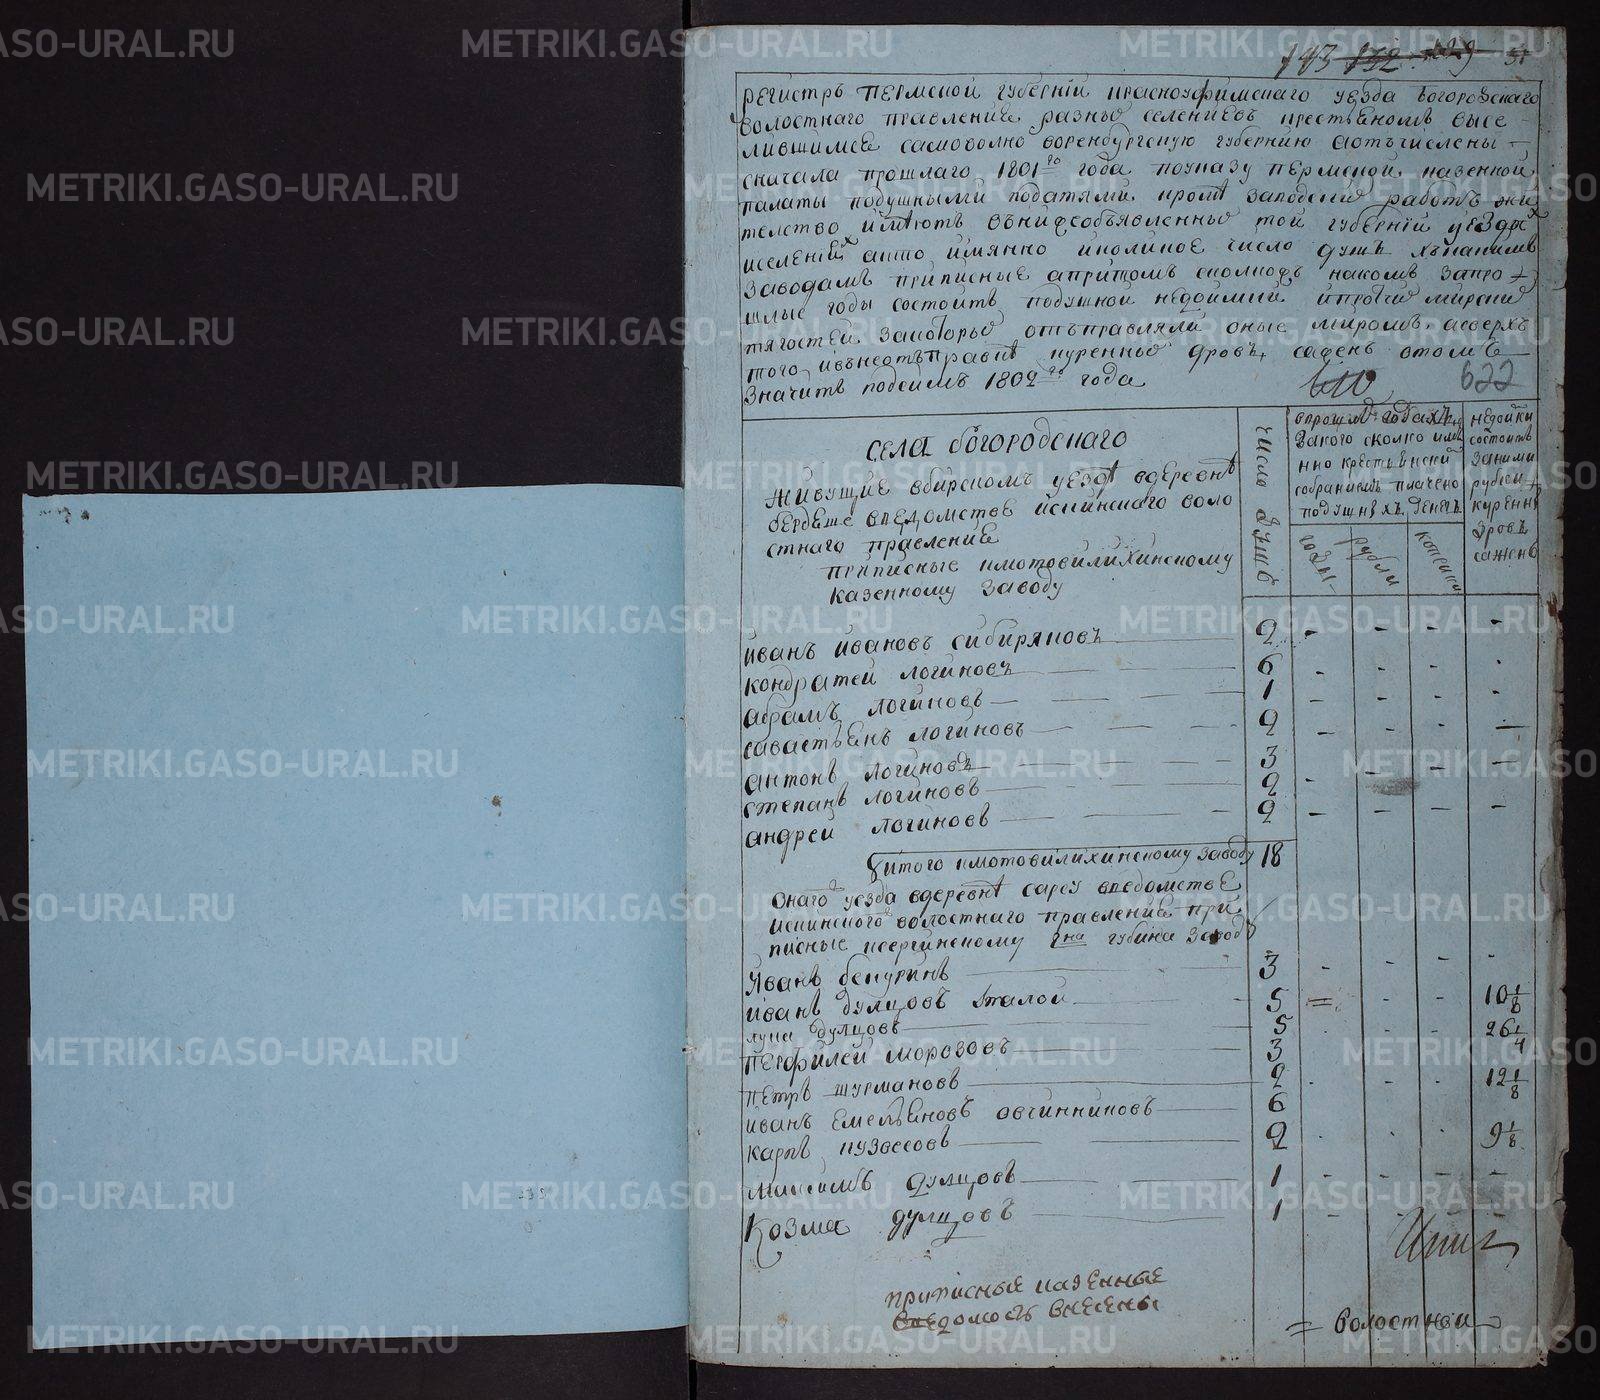 193 132 129 31
регистръ пермской губернїи красноуфимскаго уезда богородскаго
волостнаго правление разных селениевъ крестьяномъ высе
лившимсе самоволно воренбургскую губернию аотъчислены
сначала прошлаго 1801го года поуказу пермской казенной
палаты подушными податями кромѣ заводских работъ жи
телство имѣютъ внижеобъявленных той губернїи уездах
иселениях ахто имянно иколикое число душъ хъкакимъ
заводамъ приписные апритомъ сколкожъ накомъ запро
шлые годы состоитъ подушной недоимки ипротчих мирских
тягостей закоторых отъправляли оные миромъ асверхъ
того ивънеотъправке куренных дровъ сажень отомъ
значитъ подсимъ 1802го года
622
села богородскаго
живущие вбирскомъ уездѣ вдеревнѣ
бердяше введомстве искинскаго воло
стнаго правление
приписные кмотовилихинскому
казенному заводу
число душъ
впрошлых годахъ
закого сколко имя
нно крестьянски
собраниемъ плачено
подушныхъ денегъ
годы
рубли
копейки
недоимки
состоитъ
заними
рублей
куренных
дровъ
сажень
иванъ ивановъ сибиряковъ 2 - - - -
кондратей логиновъ 6 - - - -
абрамъ логиновъ 1 - - - -
савастьянъ логиновъ 2 - - - -
антонъ логиновъ 3
степанъ логиновъ 2
андрей логиновъ 2 - - - -
итого кмотовилихинскому заводу 18
онаго уезда вдеревнѣ сарсу введомстве
искинского волостнаго правление при
писные ксергинскому гна губина заводу
Иванъ бекуринъ 3 - - - -
иванъ дулцовъ малой 5 = - - 10 1/8
лука дулцовъ 5 26 1/4
перфилей морозовъ 3
петръ шурмановъ 2 12 1/8
иванъ емельяновъ овчинниковъ 6
карпъ пузвесовъ 2 9 1/8
максимъ дулцовъ 1 - - - -
козма дулцовъ 1 - - -
приписные казенные
введомость внесены
= волостной
METRIKI.GASO-URAL.RU